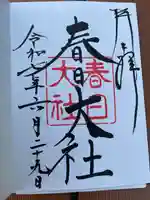 奉拝
春日大社
春日
大社
令和元年六月二十九日